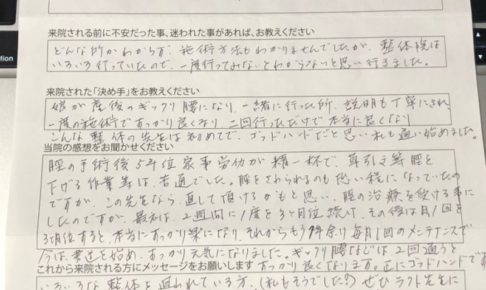 来院される前に不安だった事、迷われた事があれば、お教えください
どんな所かわからず、施術方法もわかりませんでしたが、整体院は
いろいろ行っていたので、一度行ってみないとわからないと思い行きました。
来院された「決め手」をお教えください
娘が産後のギックリ腰になり、一緒に行った所、説明も丁寧にされ、
一度の施術ですっかり良くなり、二回行っただけで本当に良くなり
こんな整体の先生は初めてで、ゴッドハンドだと思い私も通い始めました。
当院の感想をお聞かせください
腰の手術後5年位家事労働が精一杯で、草引き等腰を
下げる作業等は苦痛でした。腰をさわられるのも恐い様になっていたの
ですが、この先生なら、直して頂けるかもと思い、腰の治療を受ける事に
したのですが、最初は、2週間に1度を3ヶ月位続け、その後は月1回を
3ヶ月位すると、本当にすっかり楽になり、それからもう1年余り毎月1回のメンテナンスで
今は、書道を始め、すっかり元気になりました。ギックリ腰などは2回通うと
これから来院される方にメッセージをお願いします すっかり良くなります。正にゴッドハンドです
いろいろな整体を通われている方、(私もそうでした!)ぜひラフト先生に